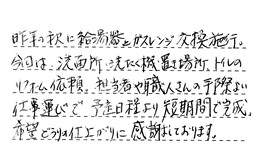 昨年の秋に給湯器とガスレンジ交換施行。
今回は、洗面所、洗たく機置き場所、トイレの
リフォーム依頼。担当者や職人さんの手際よい
仕事運びで予定日程より短期間で完成。
希望どうりの仕上がりに感謝しております。